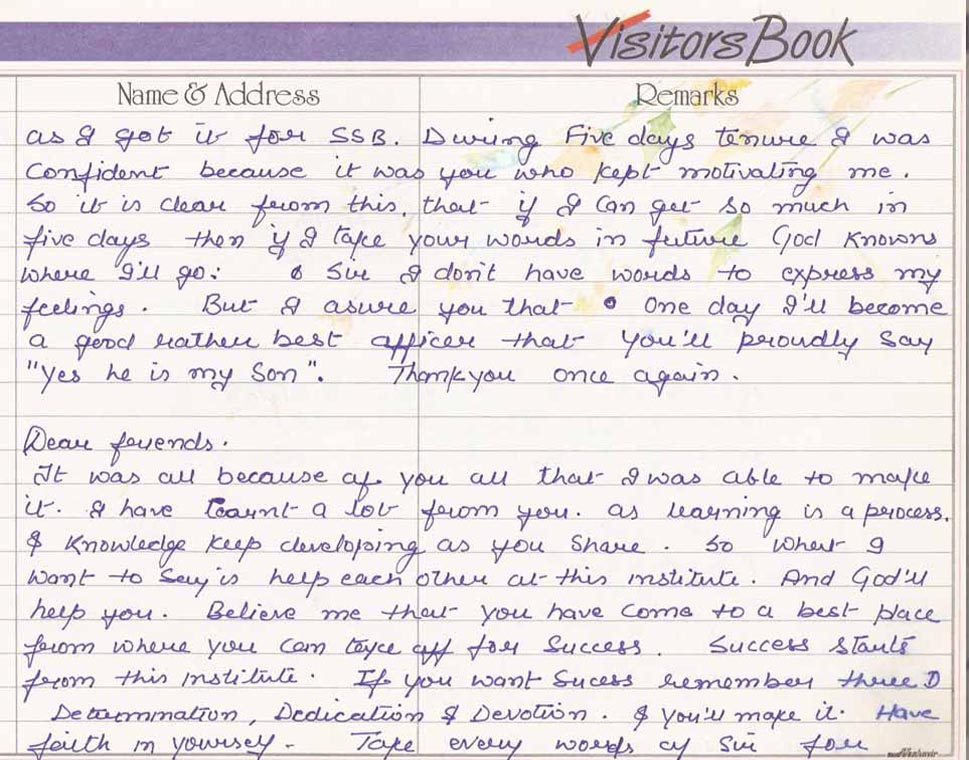 Visitors Book
Name & Address Remarks
as I got it for SSB. During Five days tenure I was
Confident because it was you who kept motivating me.
So it is clear from this, that if I can get so much in
five days then if I take your words in future God Knowns
where I'll go. Sir I don't have words to express my
feelings. But I asure you that One day I'll become
a good rather best officer that You'll proudly Say
"Yes he is my Son". Thankyou once again.
Dear friends.
It was all because of you all that I was able to make
it. I have learnt a lot from you. as learning is a process.
& Knowledge keep developing as you Share. So what I
want to Say is help each other at this institute. And God'll
help you. Believe me that you have come to a best place
from where you can take off for Success. Success starts
from this institute. If you want Sucess remember three D
Determination, Dedication & Devotion. & you'll make it. Have
feith in yourself. Take every words of Sir for